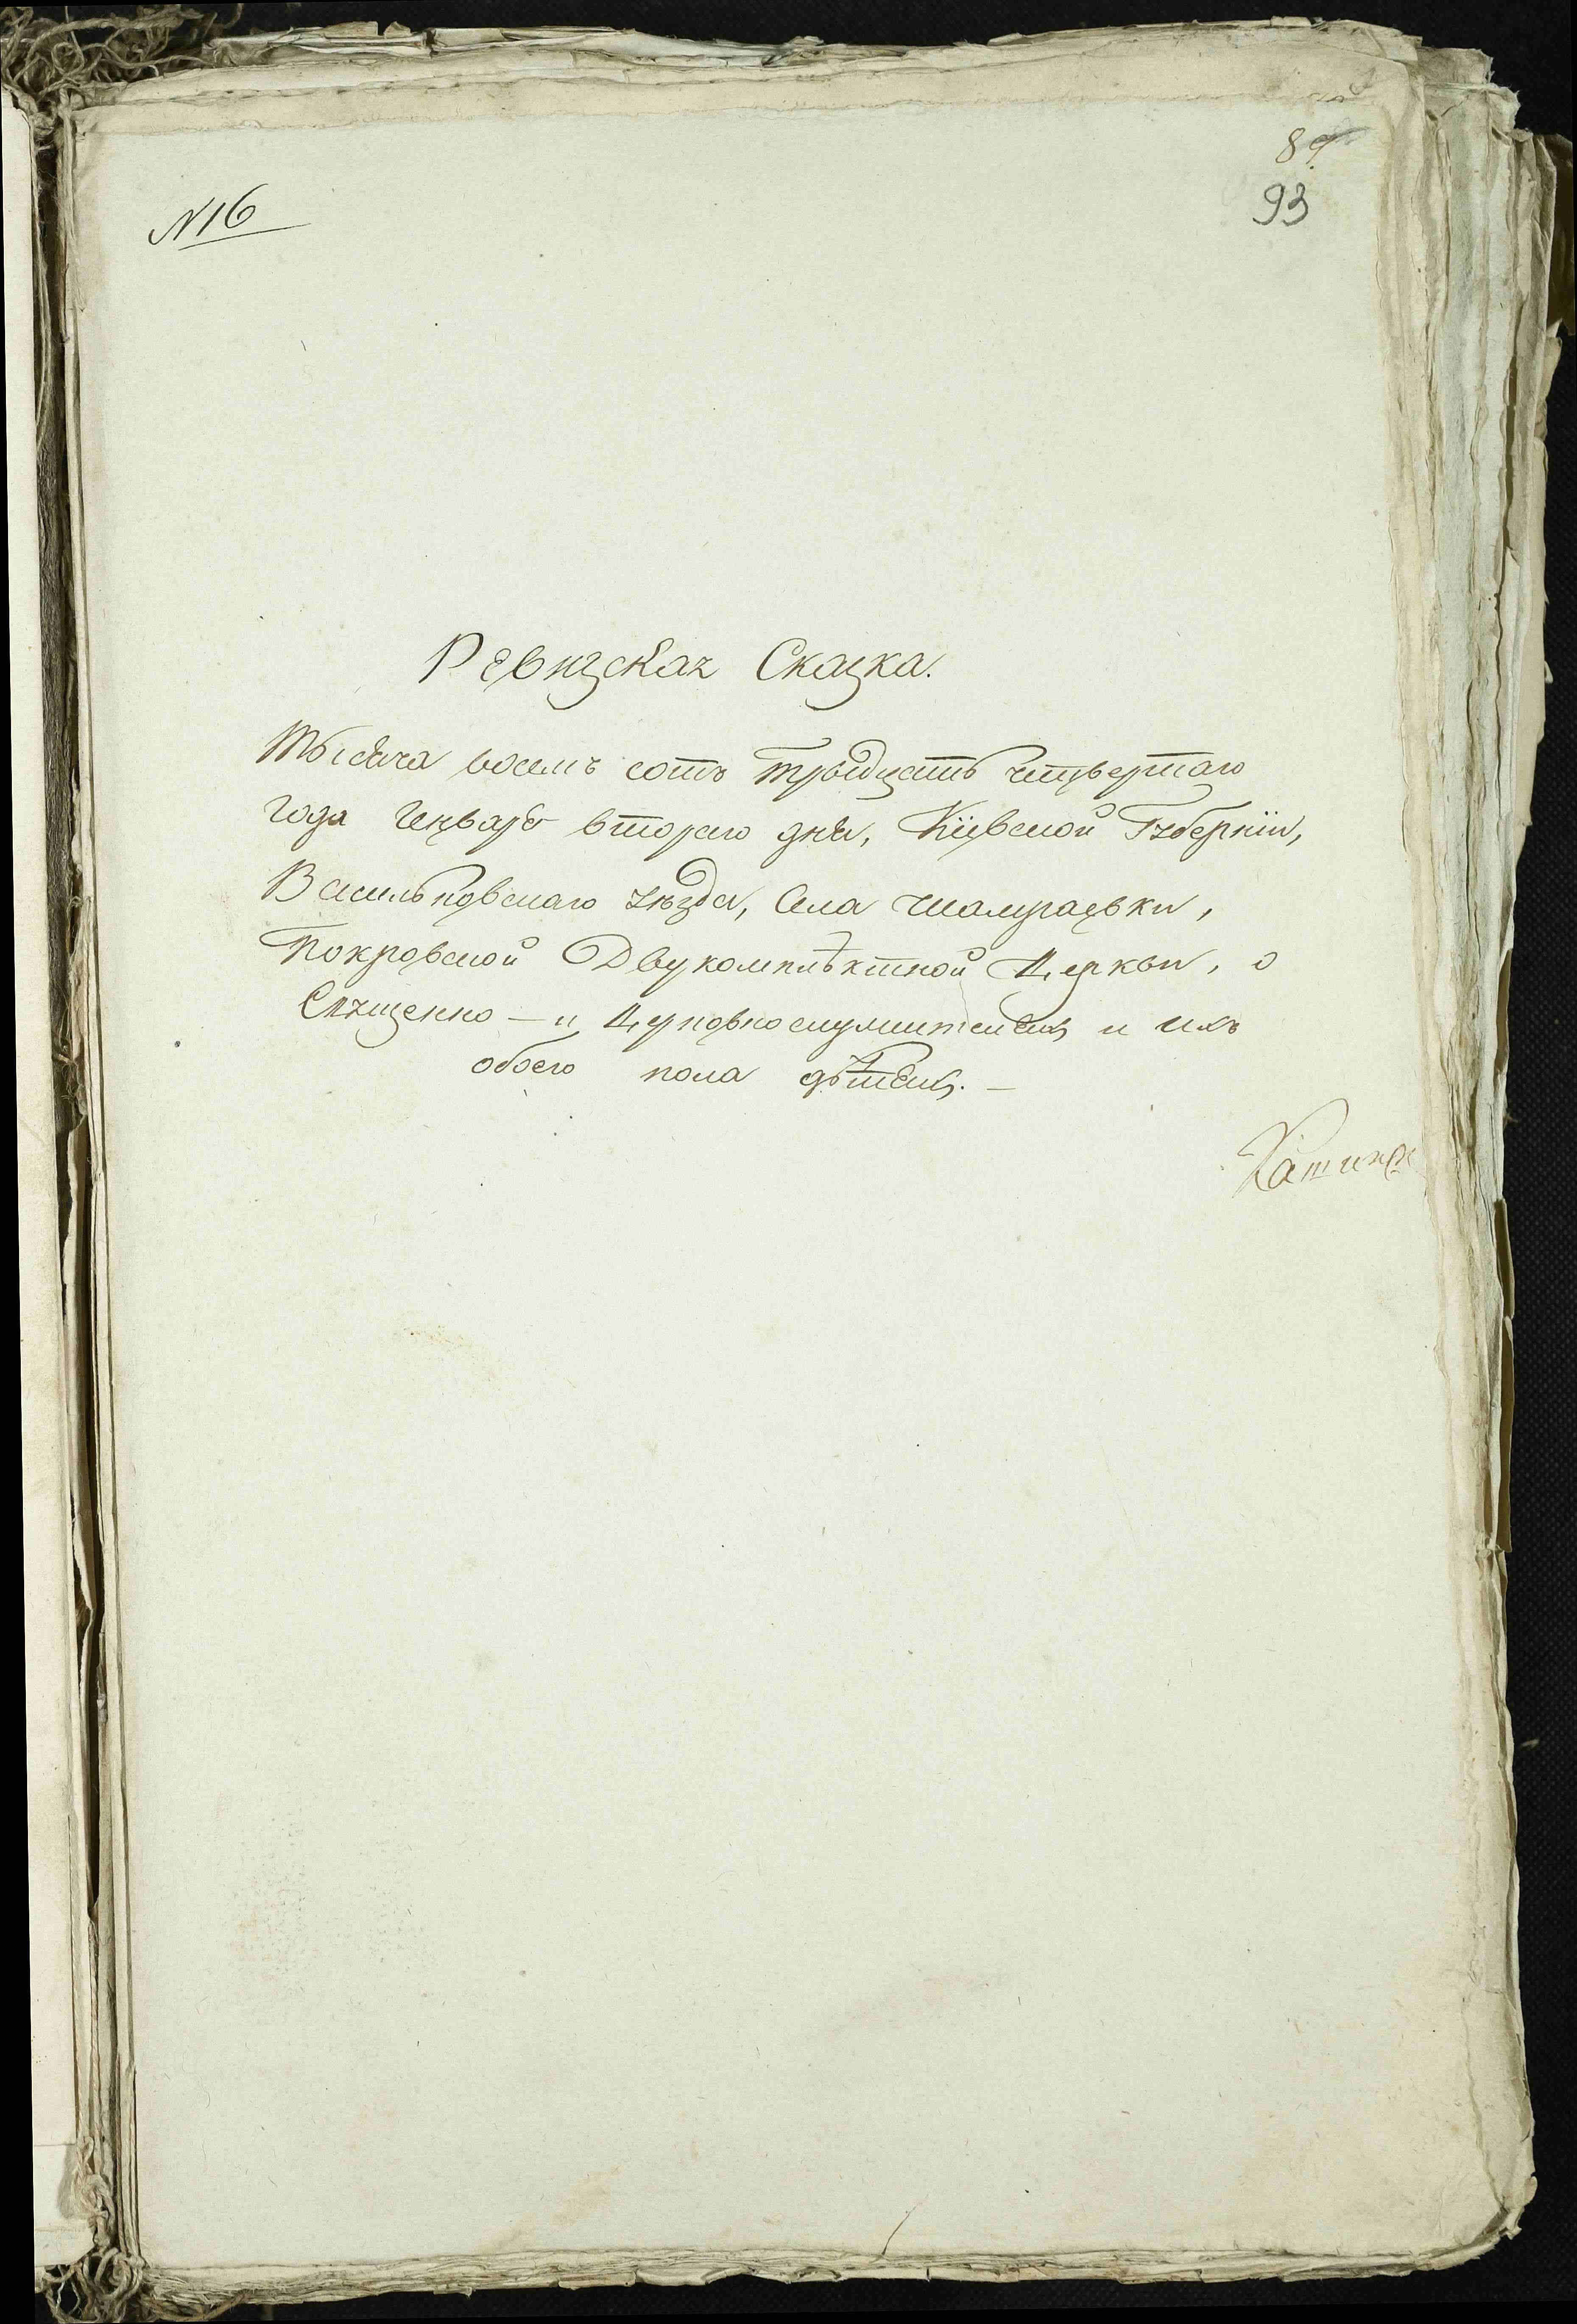 89
93
N 16
Ревизская Сказка.
Тысяча восемъ сотъ тридцать четвертаго
года Генваря втораго дня, Кіевской Губерніи,
Васильковскаго уѣзда, Села Шамраевки,
Покровской Двукомплѣктной Церкви, о
Священно - и Церковнослужителяхъ и ихъ
обоего пола дѣтяхъ. -